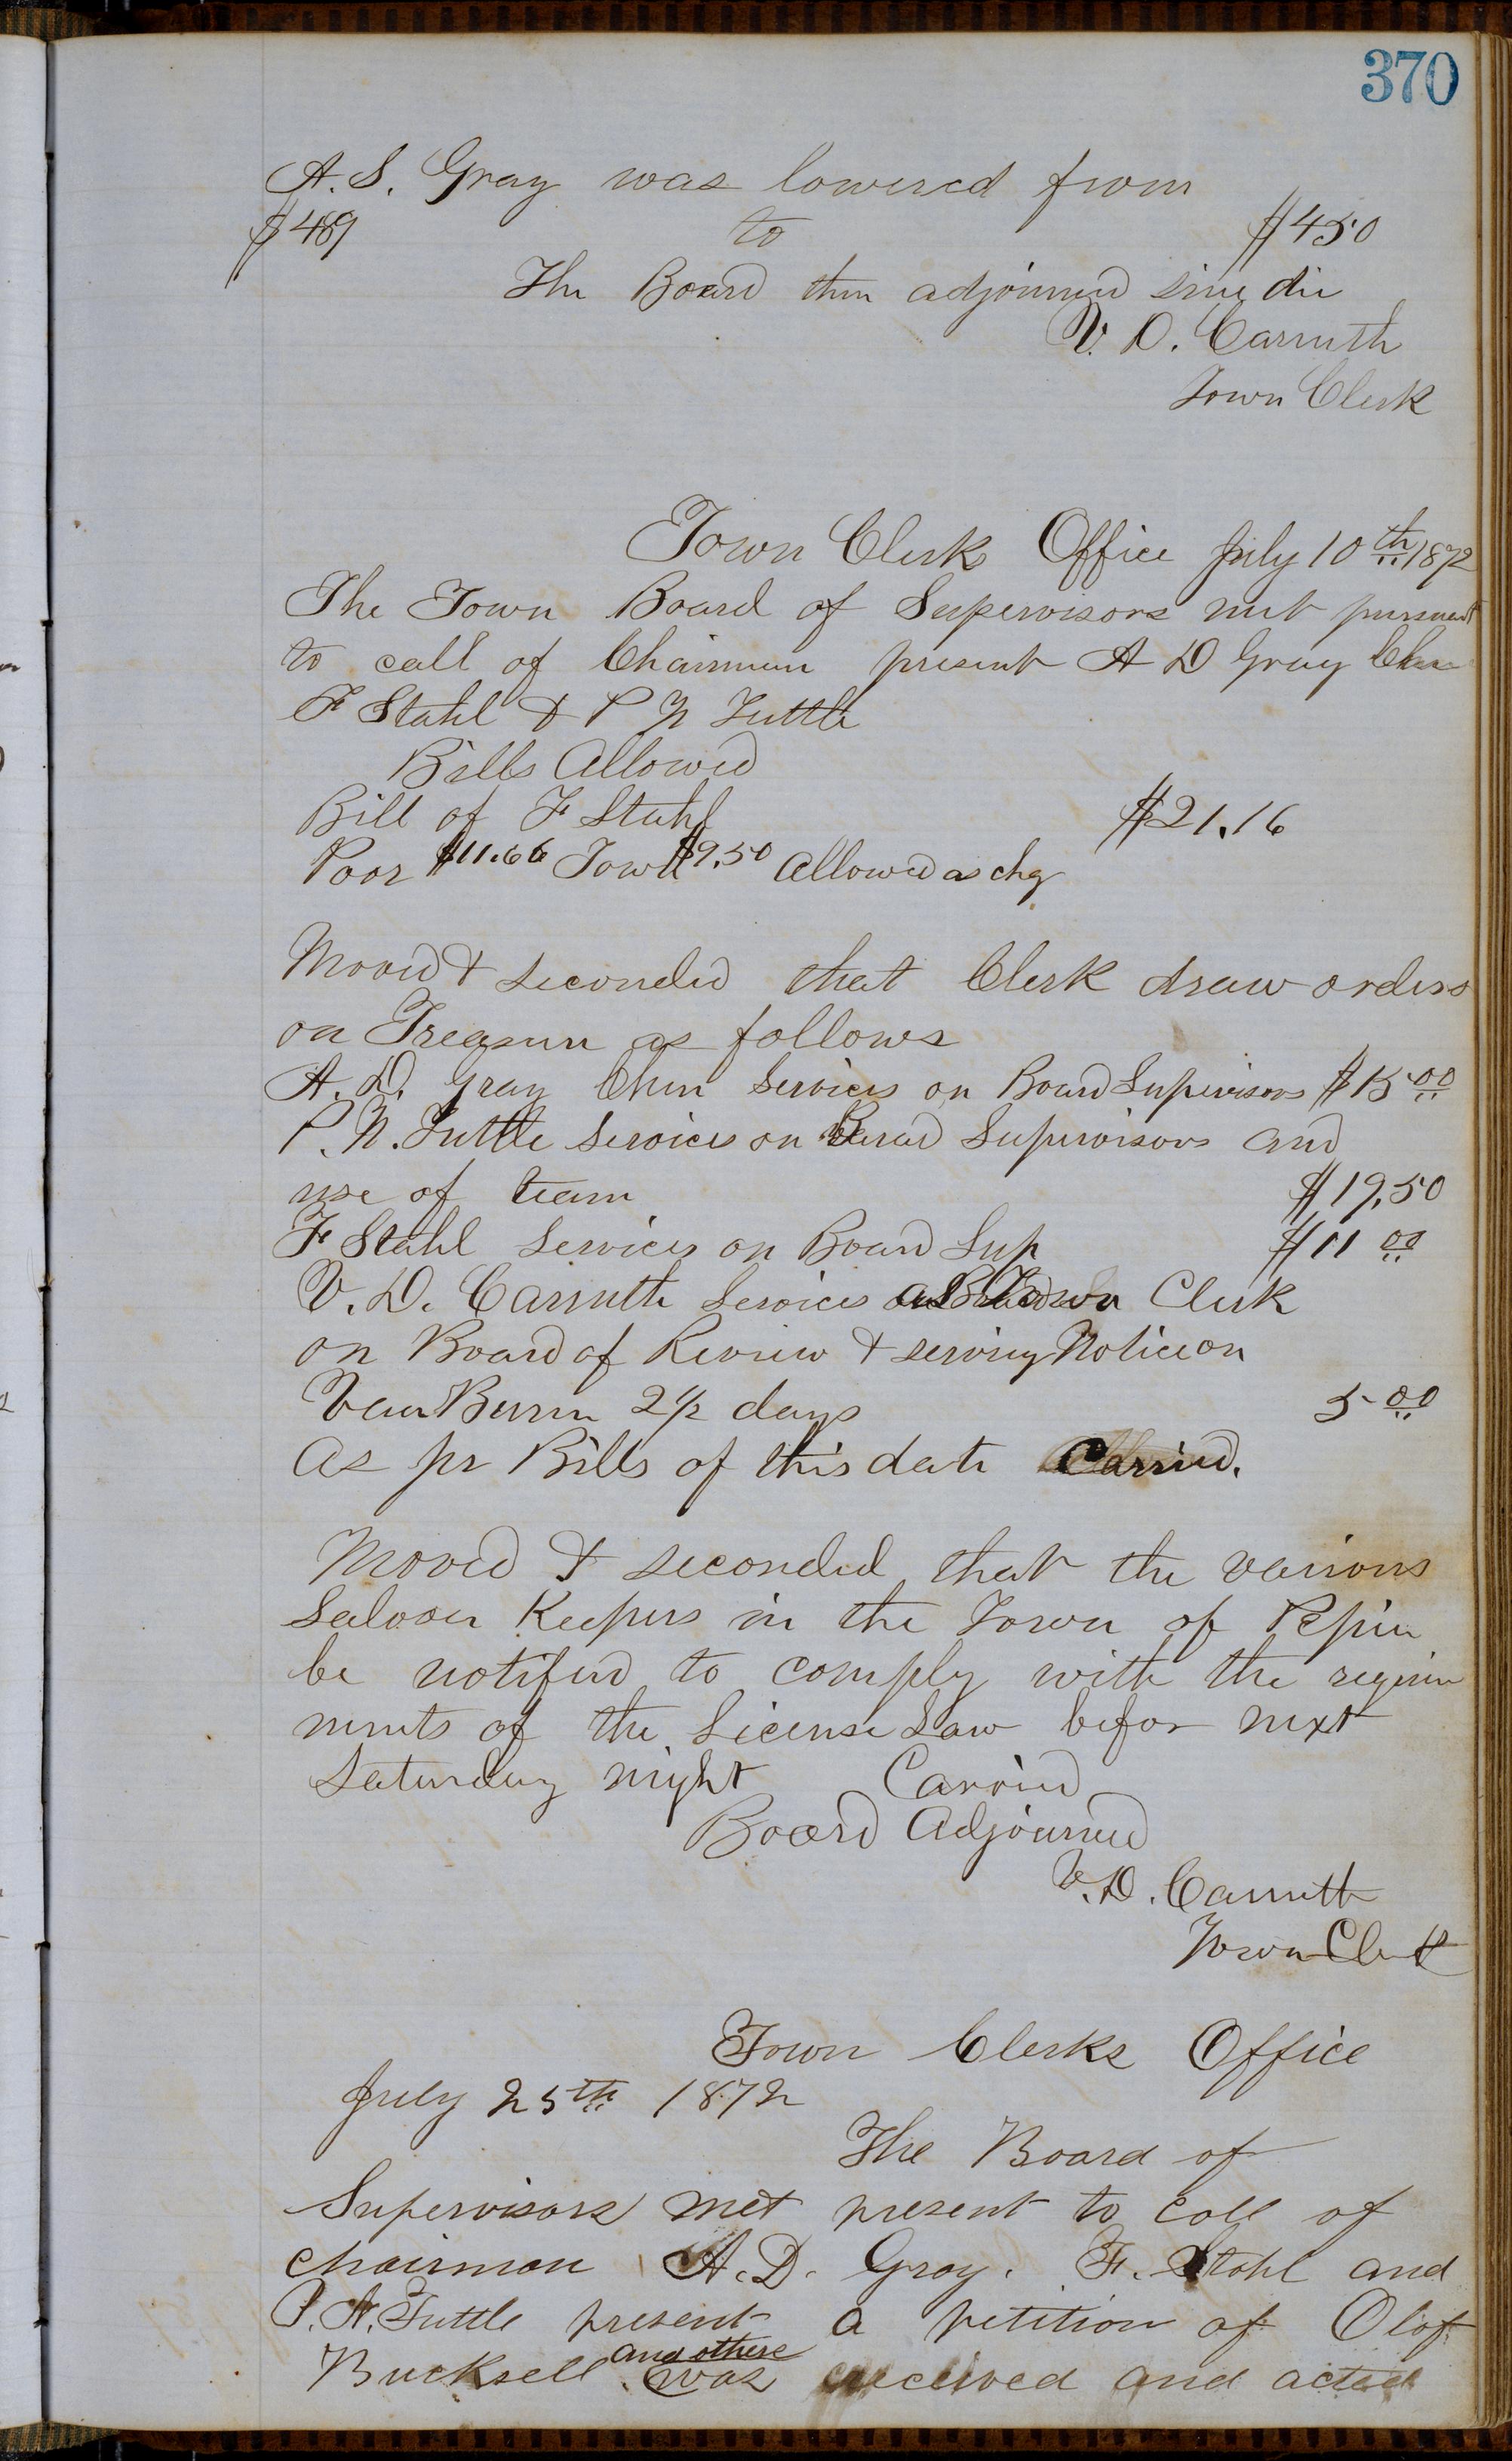 370
A. S. Gray was lowered from
$489 to $450
The Board then adjourned sine die
V. D. Carruth
Town Clerk
Town Clerks Office July 10th 1872
The Town Board of Supervisors met pursuant
to call of Chairman present A D Gray Chm
F Stahl & P N Tuttle
Bills Allowed
Bill of F Stahl $21.16
Poor $11.66 Town $9.50 Allowed as chg
Moved & seconded that Clerk draw orders
on Treasurer as follows
A. D. Gray Chm Services on Board Supervisors $15 00
P. N. Tuttle Services on Board Supervisors and
use of team $19,50
F Stahl Services on Board Sup $11 00
V. D. Carruth Services as Town Clerk
on Board of Review & serving Notice on
Van Buren 2 1/2 days 5 00
As pr Bills of this date Carried.
Moved & seconded that the various
Saloon Keepers in the Town of Pepin
be notified to comply with the require
ments of the License Law befor next
Saturday night Carried
Board Adjourned
V. D. Carruth
Town Clerk
Town Clerks Office
July 25th 1872
The Board of
Supervisors met present to call of
chairman A. D. Gray. F. Stahl and
P. N. Tuttle present a petition of Olof
Bucksell and others was received and acted